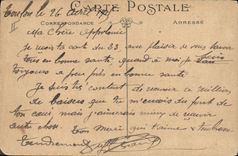 Toulon le 26 avril
CARTE POSTALE
CORRESPONDANCE
ADRESSE
II
Ma Chère Appolonie
je reçois carte du 23, avec plaisir je vous savoir
tous en bonne santé, quand à moi je suis
toujours à peu près en bonne santé
Je suis très content de recevoir ce million
de baisers que tu m'envoies du fond de
ton cœur mais j'aimerais mieux de
autre chose. Ton Henri qui t'aime &
Tendrement